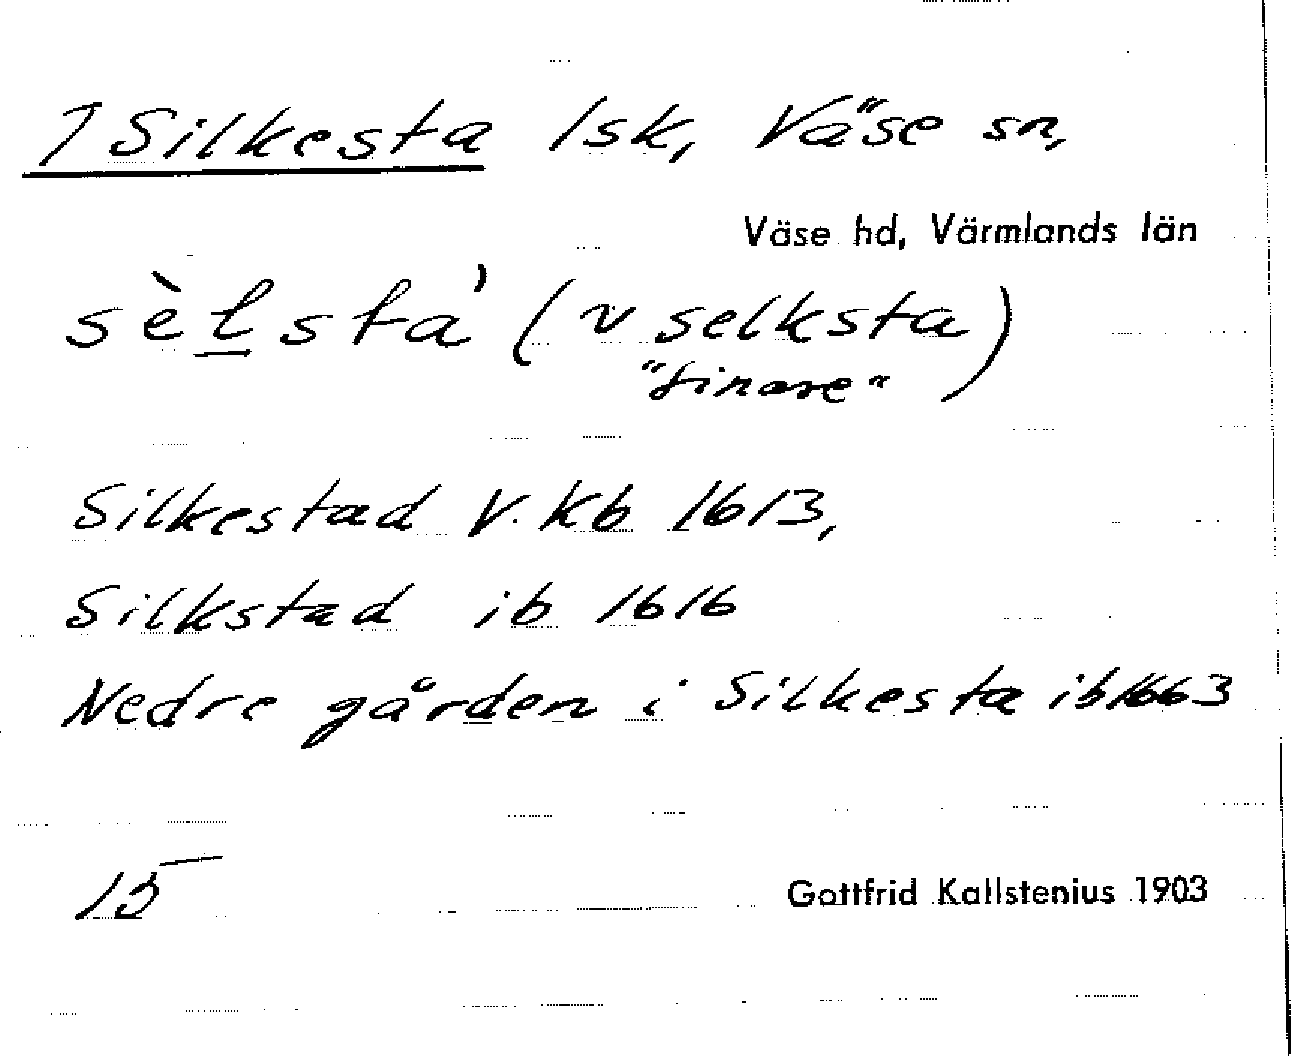 1 Silkesta 1sk, Väse sn,
Väse hd, Värmlands län
sèlsta̍ (v selksta)
"finare"
Silkestad V. Kb 1613,
Silkstad ib 1616
Nedre gården i Silkesta ib 1663
15
Gottfrid Kallstenius 1903